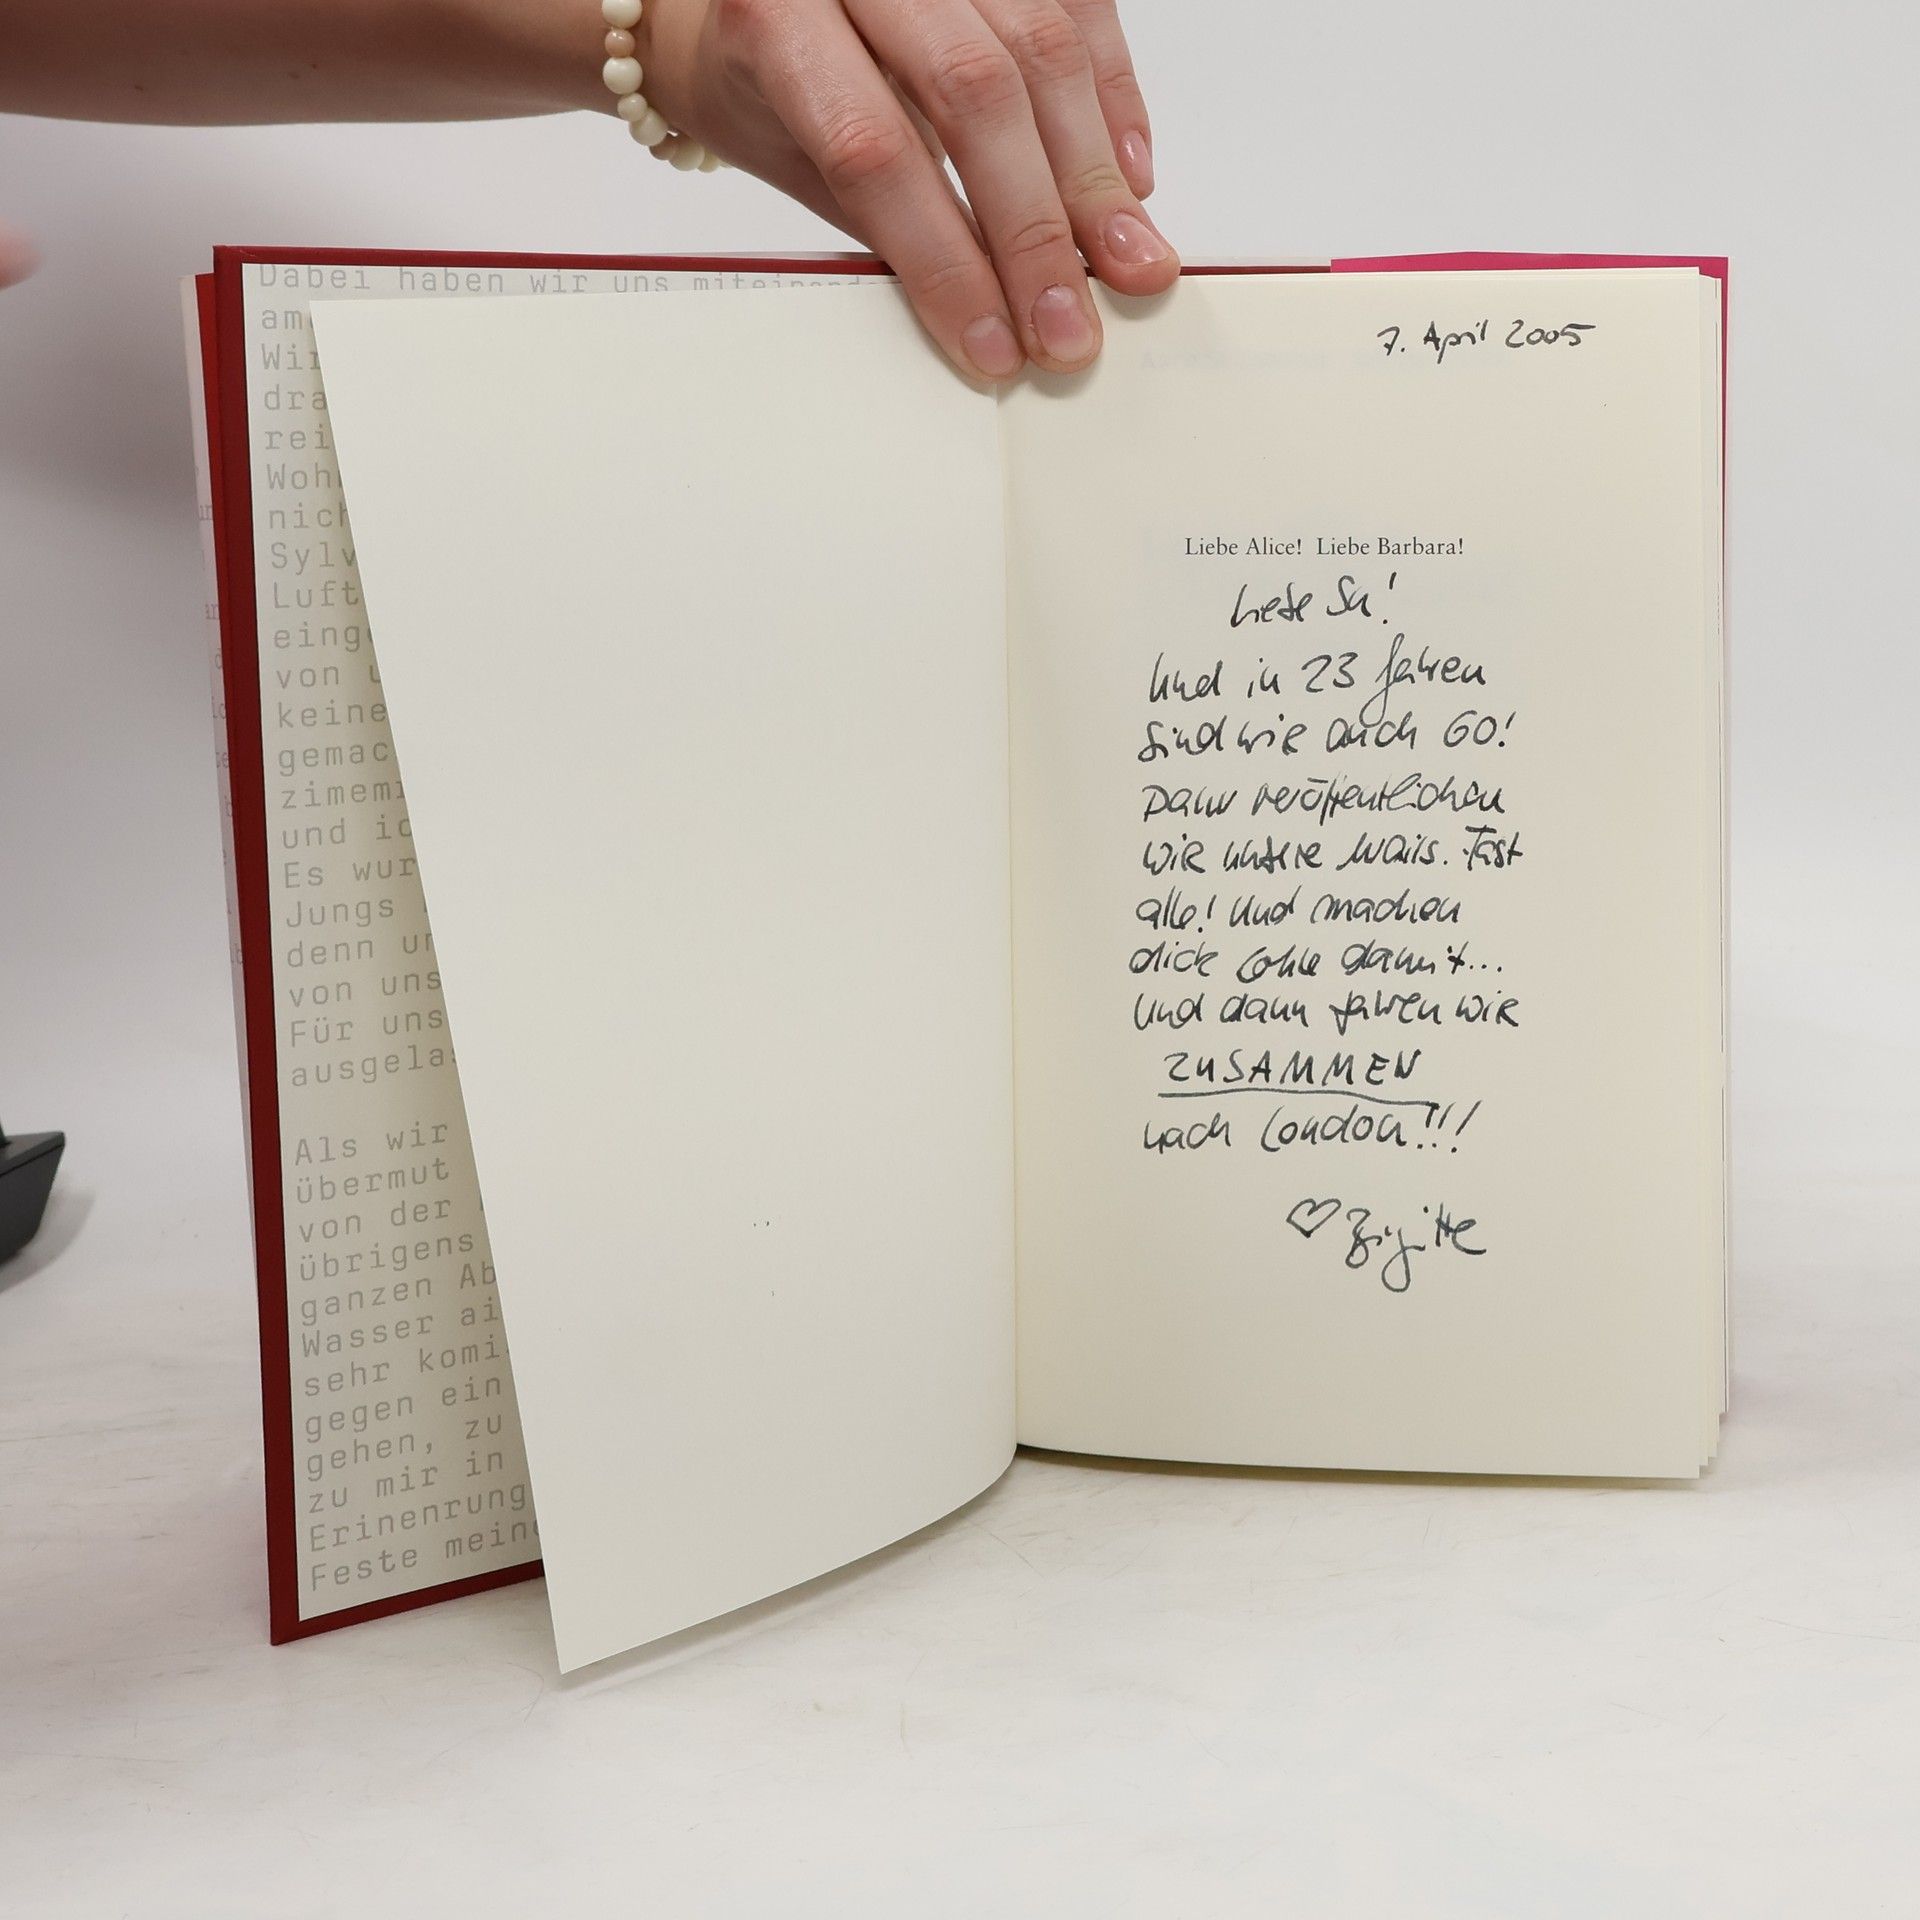 Dabei haben wir uns miteinander
am
Wir
dra
rei
Woh
nich
Sylv
Luft
einge
von u
keine
gemac
zimemi
und ic
Es wur
Jungs
denn un
von uns
Für uns
ausgelas
Als wir
übermut
von der
übrigens
ganzen Ab
Wasser ai
sehr komi
gegen ein
gehen, zu
zu mir in
Erinenrung
Feste meine
7. April 2005
Liebe Alice! Liebe Barbara!
Liebe Su!
Und in 23 Jahren
sind wir auch 60!
Dann veröffentlichen
wir unsere Mails. Fast
alle! Und machen
dick Kohle damit...
Und dann fahren wir
ZUSAMMEN
nach London!!!
♡ Birgitte